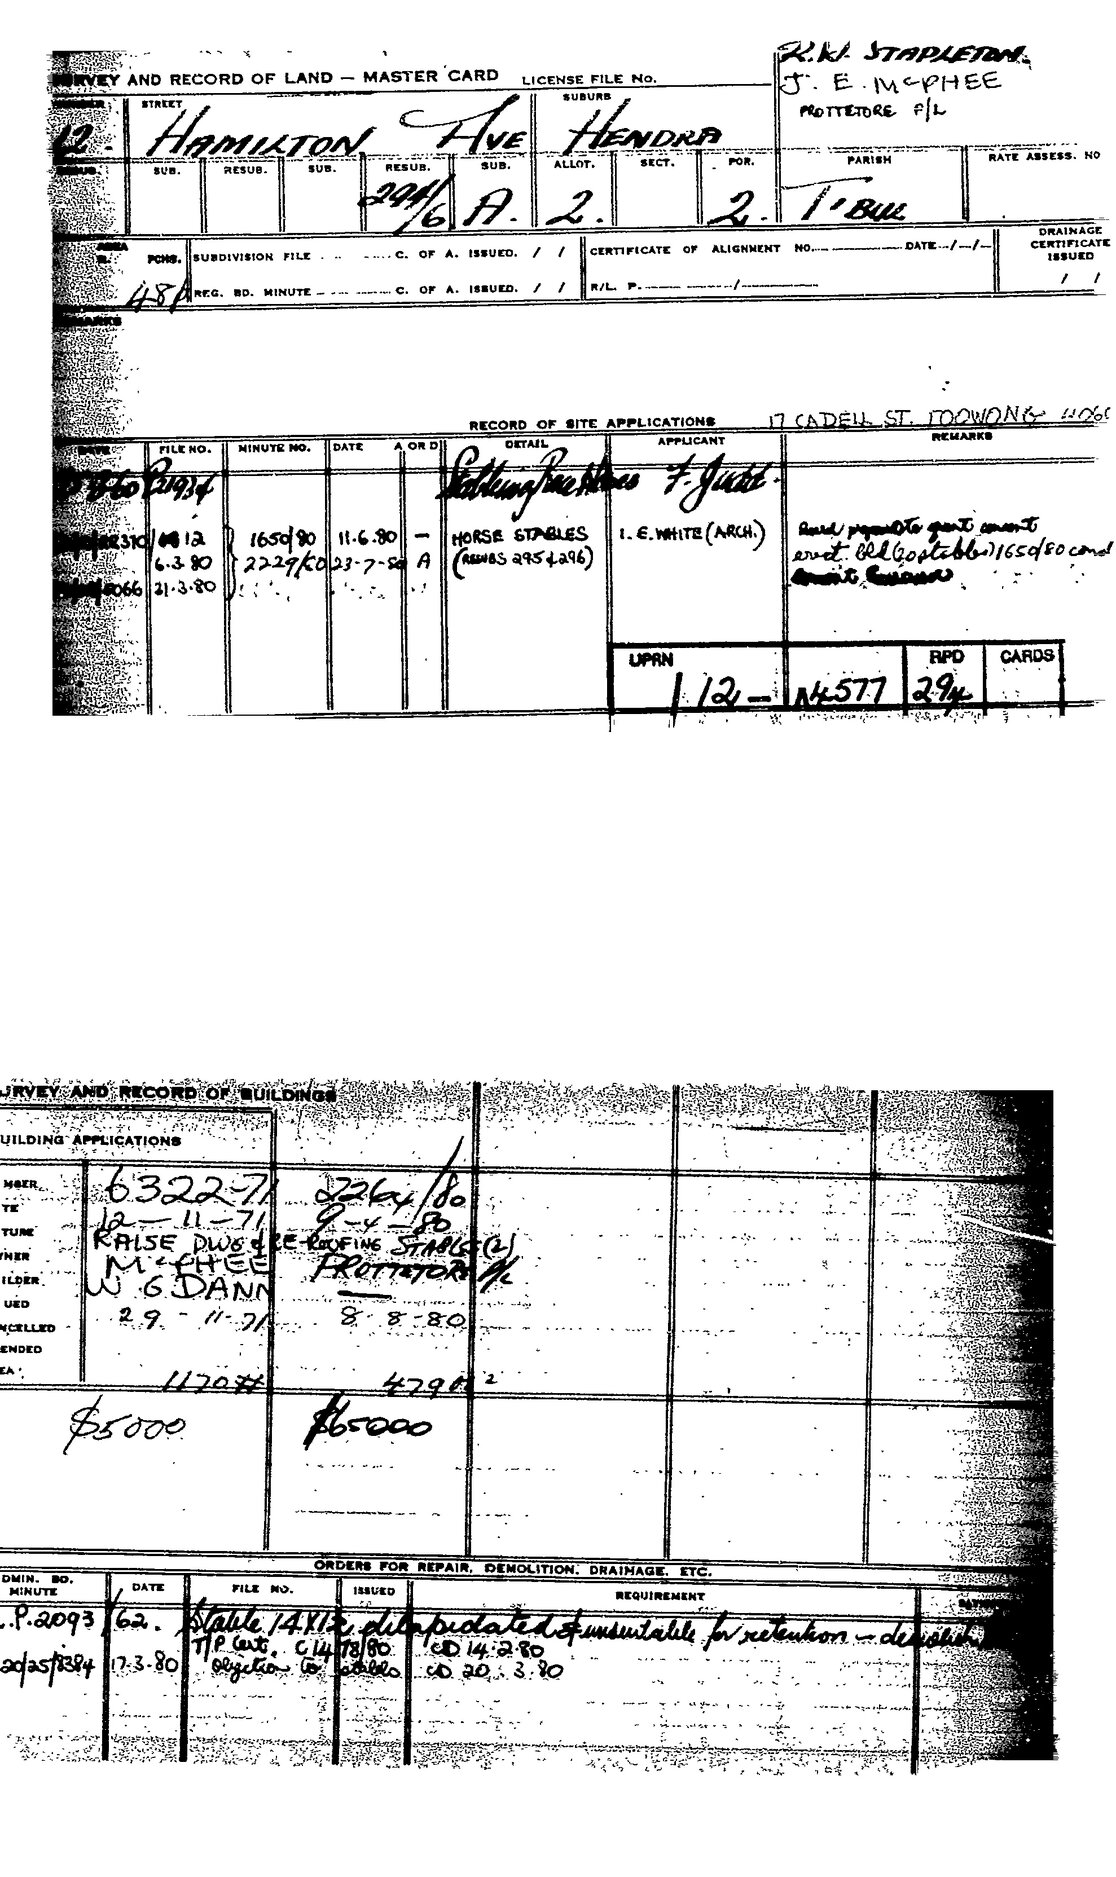 R.W. STAPLETON.
SURVEY AND RECORD OF LAND — MASTER CARD LICENSE FILE No.
J. E. McPHEE
PROTTETORE P/L
NUMBER STREET SUBURB
12. HAMILTON AVE HENDRA
RESUB. SUB. RESUB. SUB. RESUB. SUB. ALLOT. SECT. POR. PARISH RATE ASSESS. NO
294/6 A. 2. 2. T'BUL
AREA R. PCHS. SUBDIVISION FILE C. OF A. ISSUED. / / CERTIFICATE OF ALIGNMENT NO. DATE / / DRAINAGE CERTIFICATE ISSUED
48p REG. BD. MINUTE C. OF A. ISSUED. / / R/L. P. / / /
REMARKS
RECORD OF SITE APPLICATIONS 17 CADELL ST. TOOWONG 4066
DATE FILE NO. MINUTE NO. DATE A OR D DETAIL APPLICANT REMARKS
60 Stabling Race Horses F. Judd.
12 1650/80 11.6.80 — HORSE STABLES I. E. WHITE (ARCH.)
6.3.80 2229/80 23-7-80 A (RESUBS 295 & 296) erect. bld (20 stables) 1650/80 cond
5066 21.3.80
UPRN RPD CARDS
12 — N4577 294
SURVEY AND RECORD OF BUILDINGS
BUILDING APPLICATIONS
MBER 6322-71 2264/80
TE 12-11-71 9-4-80
TURE RAISE DWG & RE-ROOFING STABLE (2)
NER McPHEE PROTTETORE P/L
ILDER W G DANN —
UED 29-11-71 8-8-80
NCELLED
ENDED
EA 1170 479 m²
$5000 $65000
ORDERS FOR REPAIR, DEMOLITION, DRAINAGE, ETC.
DMIN. BD. MINUTE DATE FILE NO. ISSUED REQUIREMENT
.P.2093 /62. Stable 14X12 dilapidated & unsuitable for retention — demolish
T/P Cert. C1478/80 CD 14.2.80
20/25/8384 17-3-80 Objection to stables CD 20.3.80